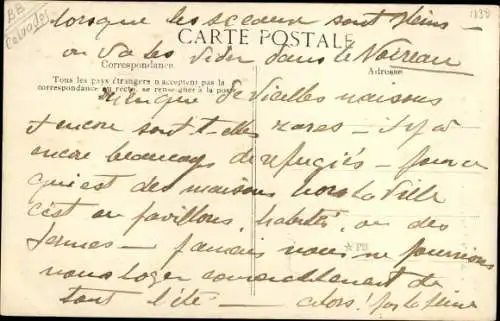 BB
Calvados
1838
lorsque les sceaux sont pleins -
on va les vider dans le Noireau
CARTE POSTALE
Correspondance
Adresse
Tous les pays étrangers n'acceptent pas la
correspondance au recto, se renseigner à la poste
que de vieilles maisons
et encore sont-elles rares - il y a
encore beaucoup de réfugiés - pour ce
qui est des maisons hors la ville
c'est ou pavillons, habités, ou des
fermes - jamais nous ne pourrions
nous loger convenablement de
tout l'été - alors! pas la peine
PB